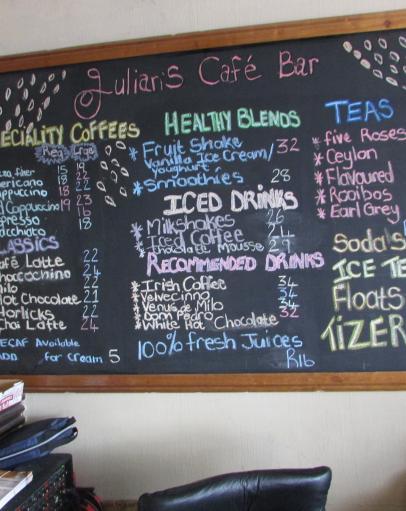 Julian's Café Bar
ECIALITY COFFEES
Reg Lrge
15 22
ericano 18 22
ppuccino 18 23
Cappuccino 19 23
presso 16
acchiato 18
LASSICS
afé Latte 22
hococchino 24
ilo 22
Hot Chocolate 21
Horlicks 22
Chai Latte 24
ECAF Available
ADD for cream 5
HEALTHY BLENDS
* Fruit Shake 32
Vanilla Ice Cream/
youghurt
* Smoothies 28
ICED DRINKS
* Milkshakes 26
* Iced Coffee 24
* Chocolate Mousse 29
RECOMMENDED DRINKS
* Irish Coffee 34
* Velvecinno 34
* Venus de Milo 34
* Dom Pedro 34
* White Hot Chocolate 32
100% fresh Juices
R16
TEAS
* five Roses
* Ceylon
* Flavoured
* Rooibos
* Earl Grey
Soda's
ICE TE
Floats
TiZER